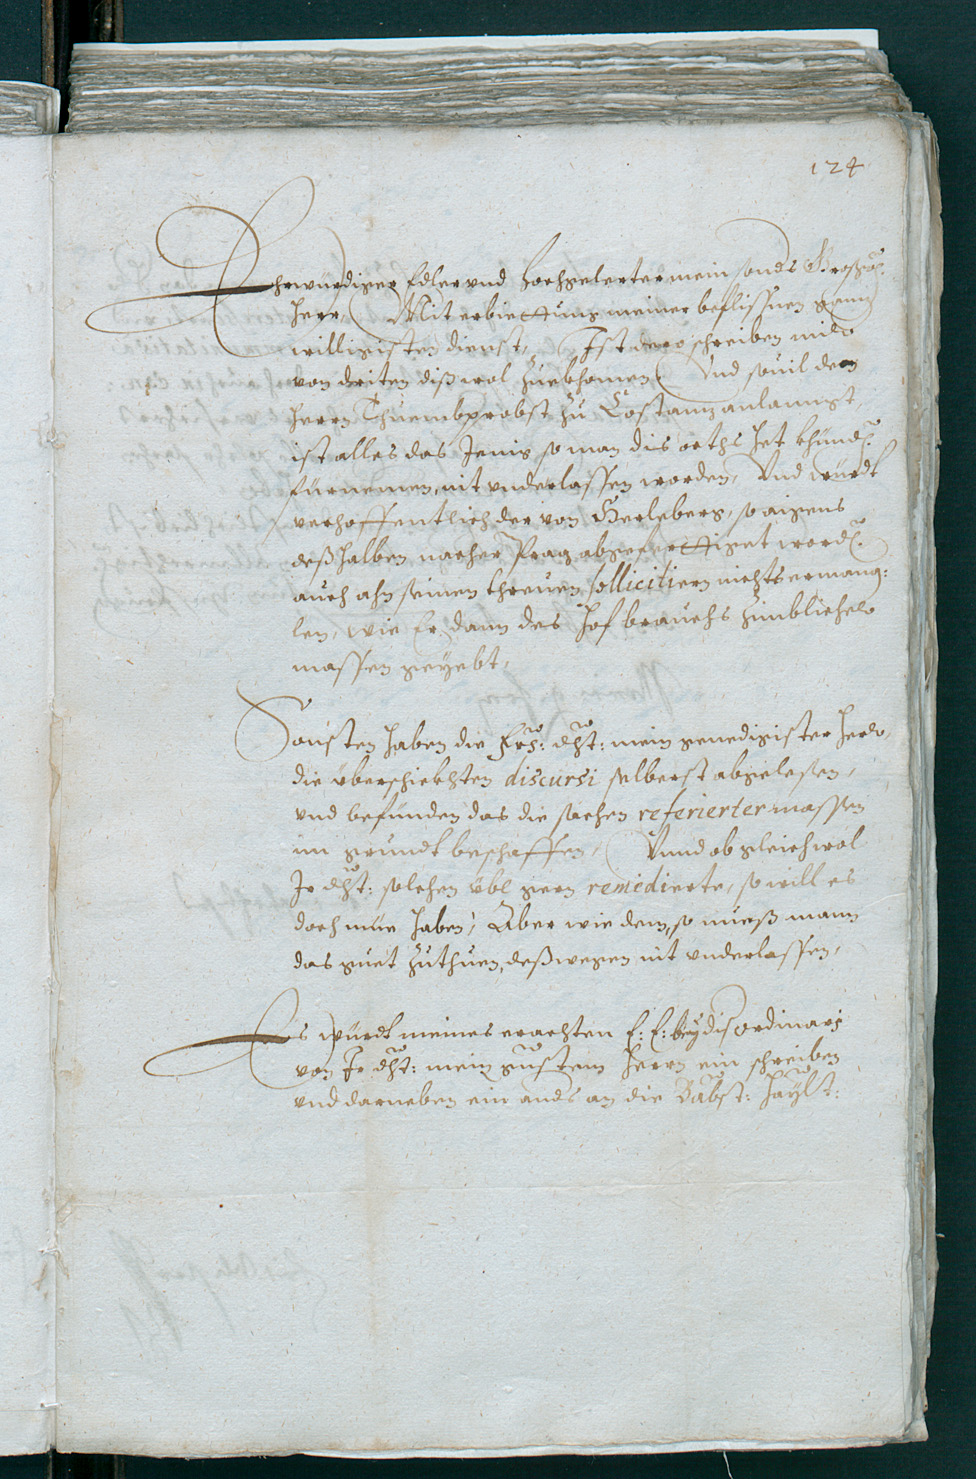 124
Ehrwürdiger Edler und Hochgelerter mein sonders Großg:
Herr, Mit erbiettung meiner beflissnen ganz
willigisten dienst, Ist dero schreiben mir
von driten diß wol zuekhomen, Und souil den
Herrn Thuembprobst zu Costanz anlangt,
ist alles das Jenig so man dis orths het khünd:
fürnemen, nit underlassen worden, Und würdt
verhoffentlich der von Herleberg, so aigens
deßhalben nacher Prag abgeferttiget word:
auch ahn seinem threuen solliciti ern nichts ermang:
len, wie Er dann des Hof brauchs zimblicher
massen geyebt,
Sonsten haben die Frl: dht: mein genedigister Herr,
die überschickhten discursi selberst abgelesen,
und befunden das die sachen referierter massen
im grundt beschaffen, Unnd ob gleichwol
Ir dht: solchen übl gern remedierte, so will es
doch müe haben, Aber wie dem, so mueß mann
das guet zuthuen, deßwegen nit underlassen,
Es würdt meines erachten E: E: bey dis ordinari
von Ir dht: mein gnstem Herrn ein schreiben
und darneben ein anders an die Bäbst: Haylt: